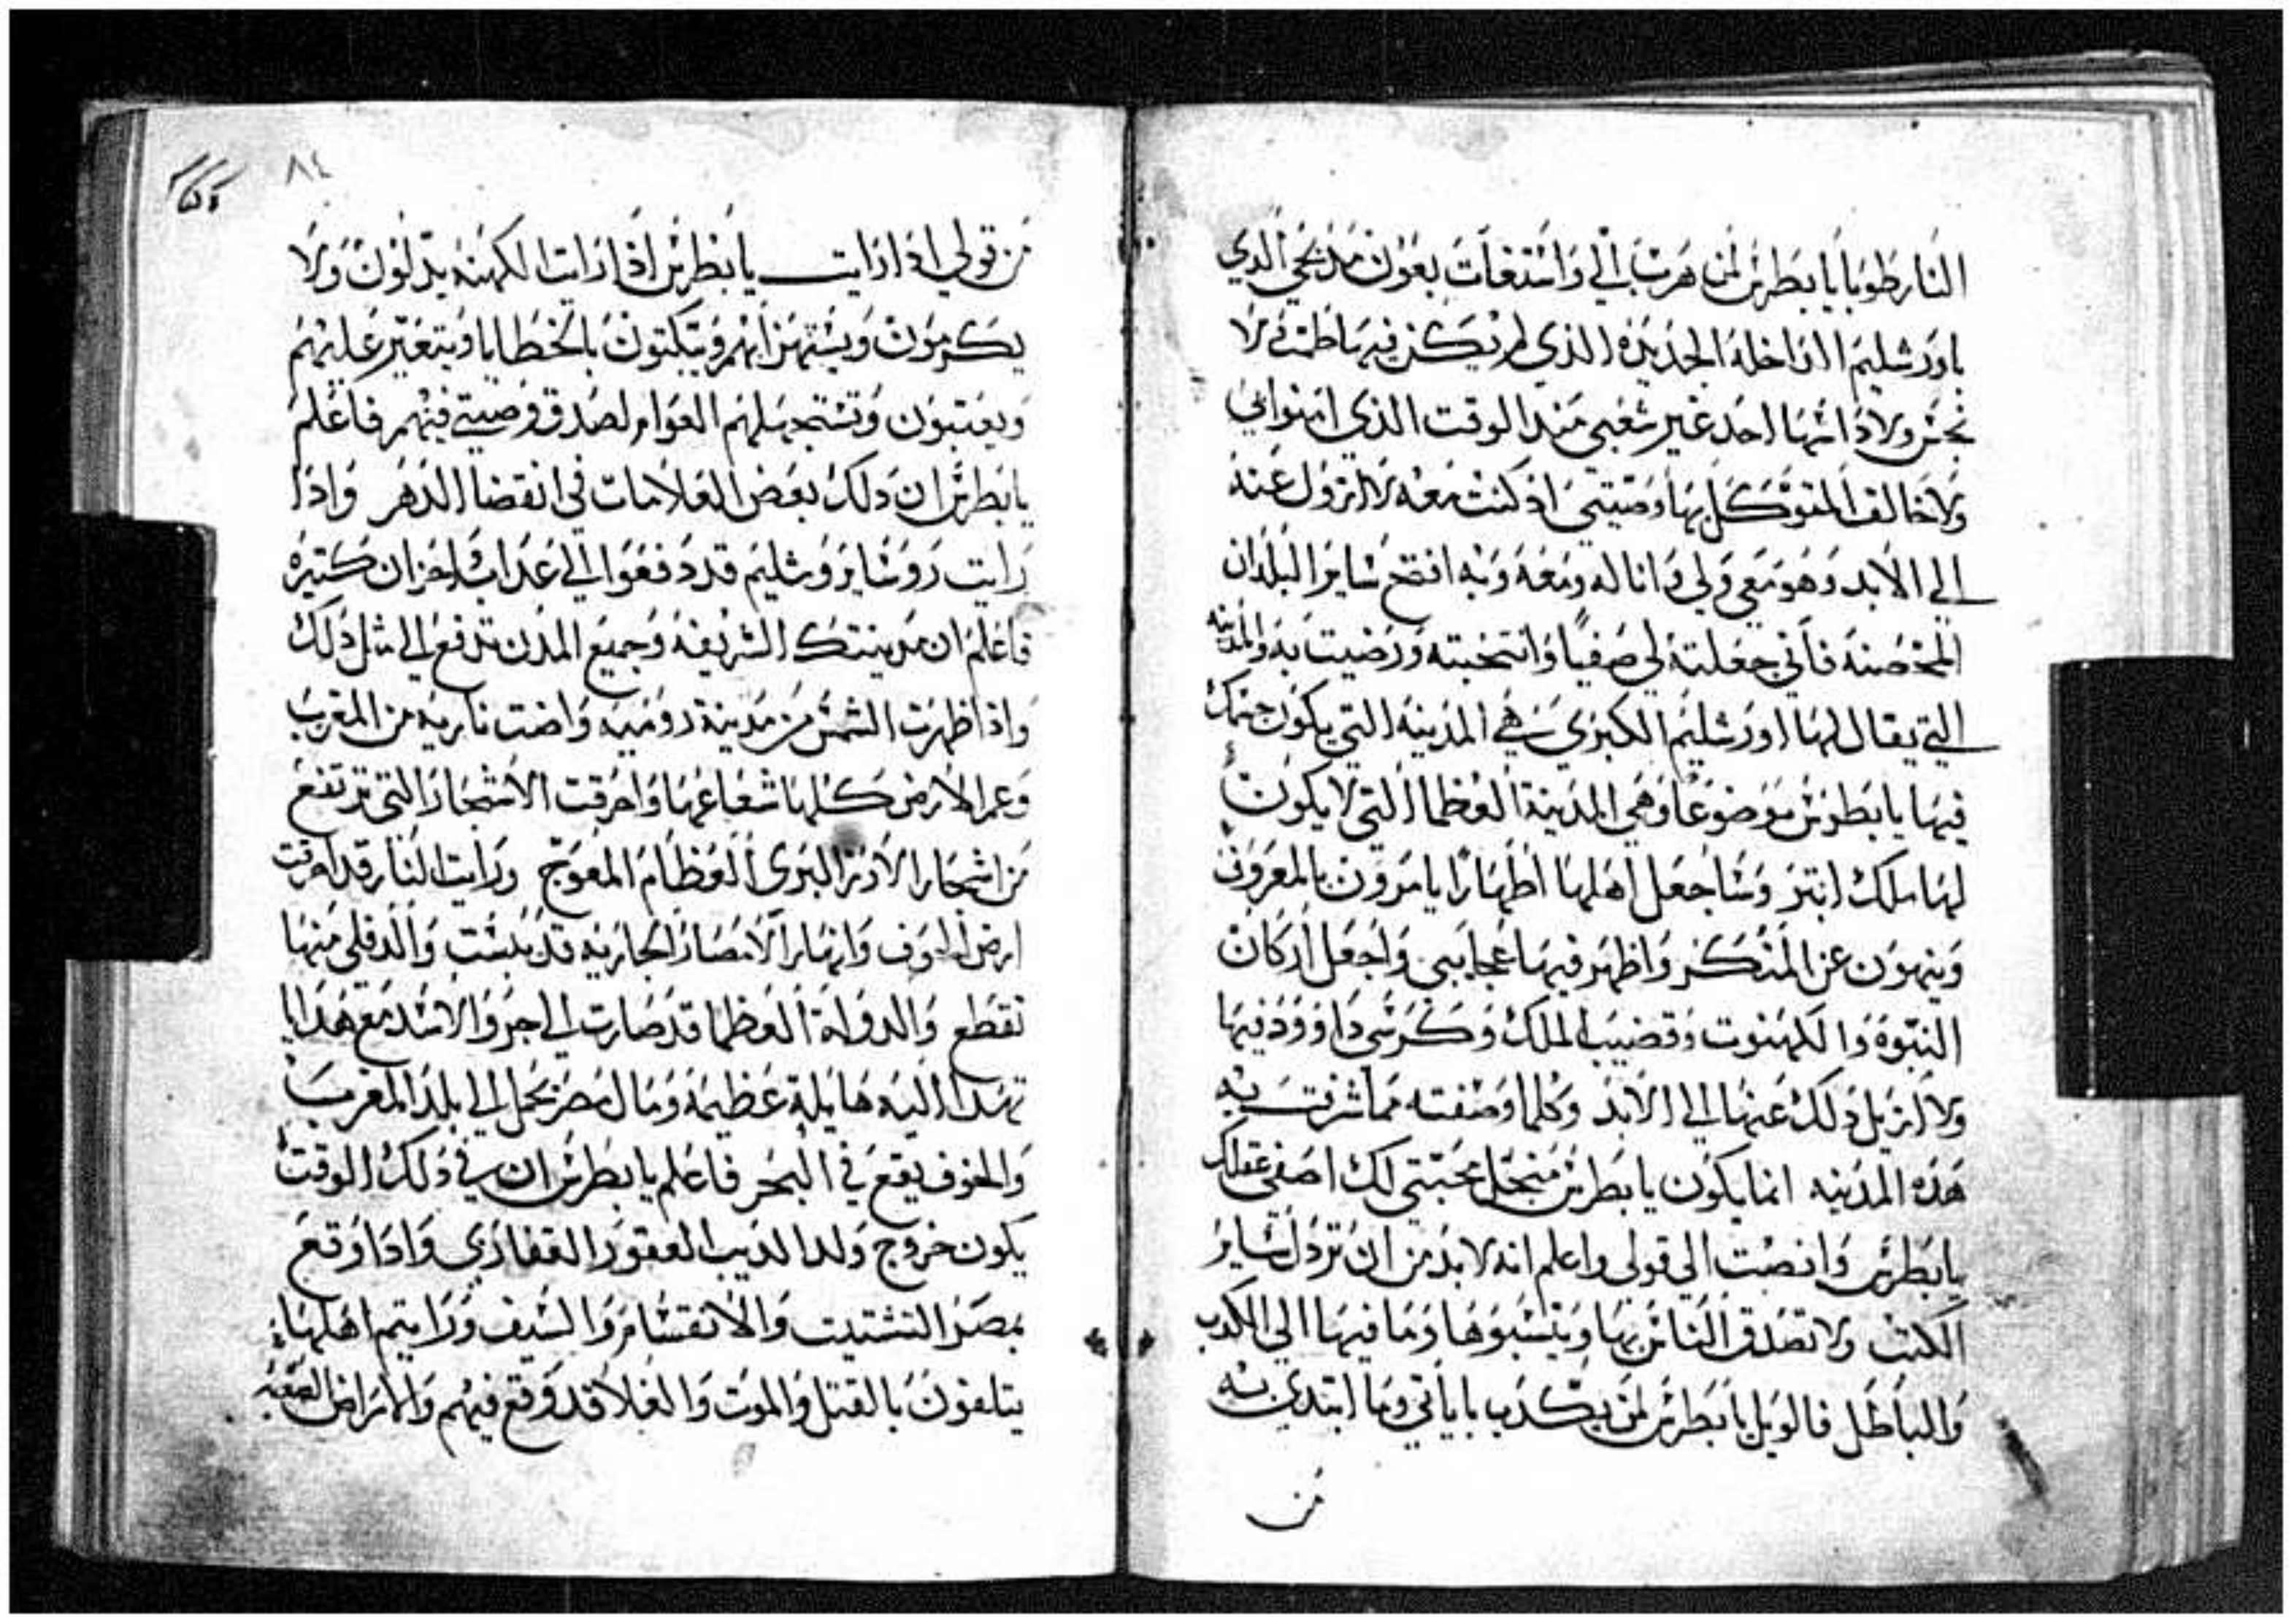 النار طوبا يا بطرس لمن هرب الي واستغات بعون مذبحي الدي
باورشليم الداخله الجديده الذي لم يكن فيها طمت ولا
نجس ولا داسها احد غير شعبي مند الوقت الذي امنوا بي
ولا خالف المتوكل بها وصيتي اذ كنت معه لا ازول عنه
الي الابد وهو معي ولي وانا له ومعه وبه افتح ساير البلدان
المحصنه فاني جعلته لي صفيا وانتخبته ورضيت به والمدينه
التي يقال لها اورشليم الكبري هي المدينه التي يكون جسمك
فيها يا بطرس موضوعا وهي المدينة العظما التي لا يكون
لها ملك ابتر وساجعل اهلها اطهارا يامرون بالمعروف
وينهون عن المنكر واظهر فيها عجايبي واجعل اركان
النبوه والكهنوت وقضيب الملك وكرسي داوود فيها
ولا ازيل ذلك عنها الي الابد وكلما وصفته مما شرفت به
هذه المدينه انما يكون يا بطرس من اجل محبتي لك اصفي عقلك
يا بطرس وانصت الي قولي واعلم انه لابد من ان تردل ساير
الكتب ولا تصدق الناس بها وينسبوها وما فيها الي الكدب
والباطل فالويل يا بطرس لمن يكدب باياتي وما ابتدي به
من
٨٤
من قولي اذا رايت يا بطرس اذا رايت الكهنه يدلون ولا
يكرمون ويستهزا بهم ويبكتون بالخطايا ويتغير عليهم
ويعتبون وتستجهلهم العوام لصدق وصيتي فيهم فاعلم
يا بطرس ان دلك بعض العلامات في انقضا الدهر واذا
رايت روسا يروشليم قد دفعوا الي عداب واحزان كتيره
فاعلم ان مدينتك الشريفه وجميع المدن تدفع الي مثل دلك
واذا ظهرت الشمس من مدينة روميه واضت ناريه من المغرب
وعم الارض كلها شعاعها واحرقت الاشجار التي ترتفع
من اشجار الارز البري العظام المعوج ورايت النار قد احرقت
ارض الجوف وانهار الامصار الجاريه قد يبست والدفلي منها
تقطع والدولة العظما قد صارت الي جرو الاسد مع هدايا
تهدا اليه هايلة عظيمه ومال مصر يحمل الي بلد المغرب
والخوف يقع في البحر فاعلم يا بطرس ان في دلك الوقت
يكون خروج ولد الديب العقور القفاري واذا وقع
بمصر التشتيت والانقسام والسيف ورايتم اهلها
يتلفون بالقتل والموت والغلا قد وقع فيهم والامراض الصعبه